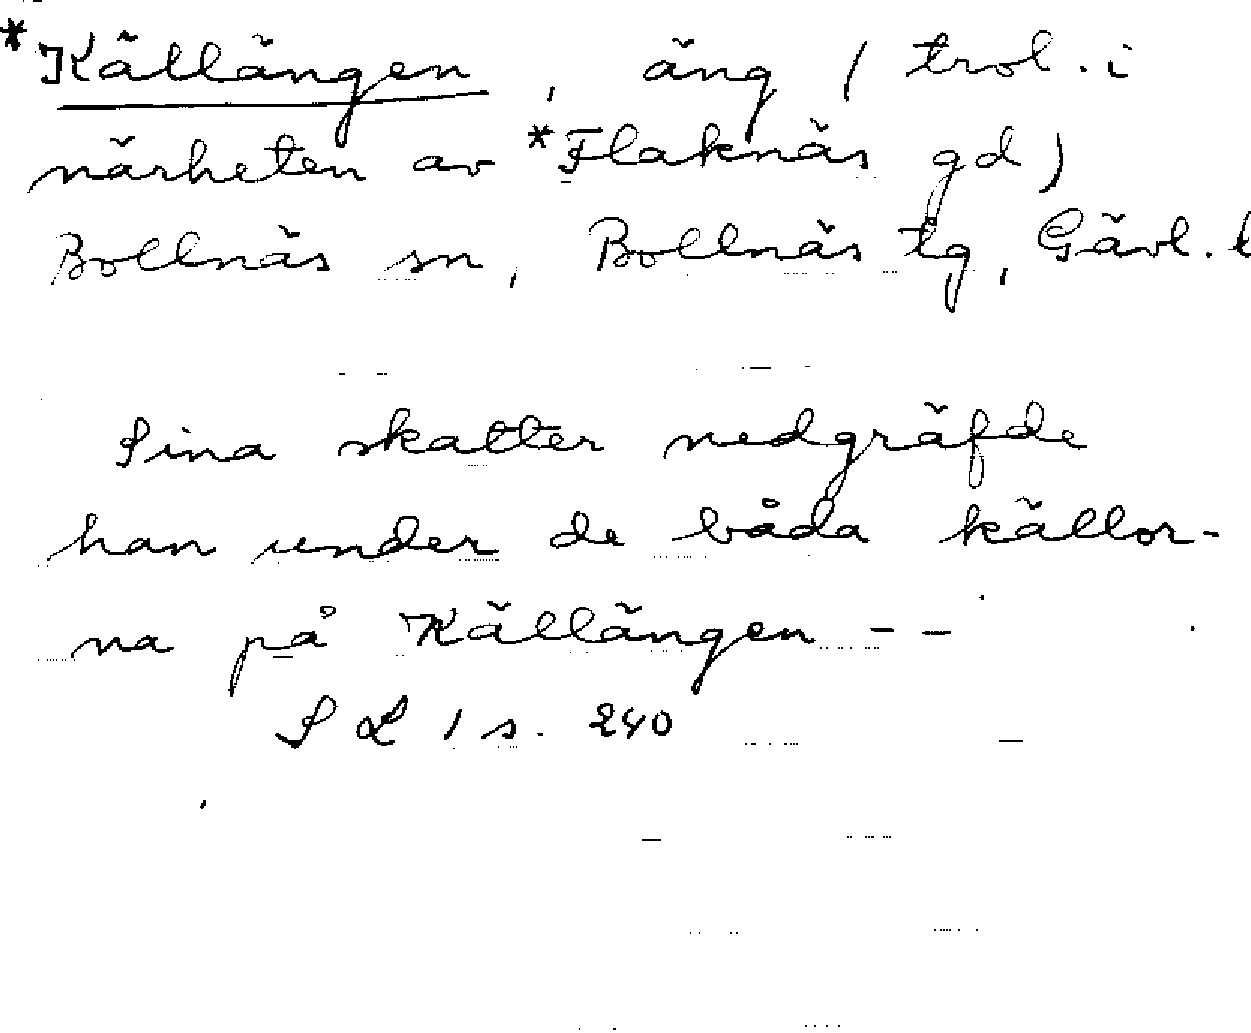 *Källängen, äng (trol. i
närheten av *Flaknäs gd)
Bollnäs sn, Bollnäs tg, Gävl. l
Sina skatter nedgräfde
han under de båda källor-
na på Källängen - -
S L 1 s. 240